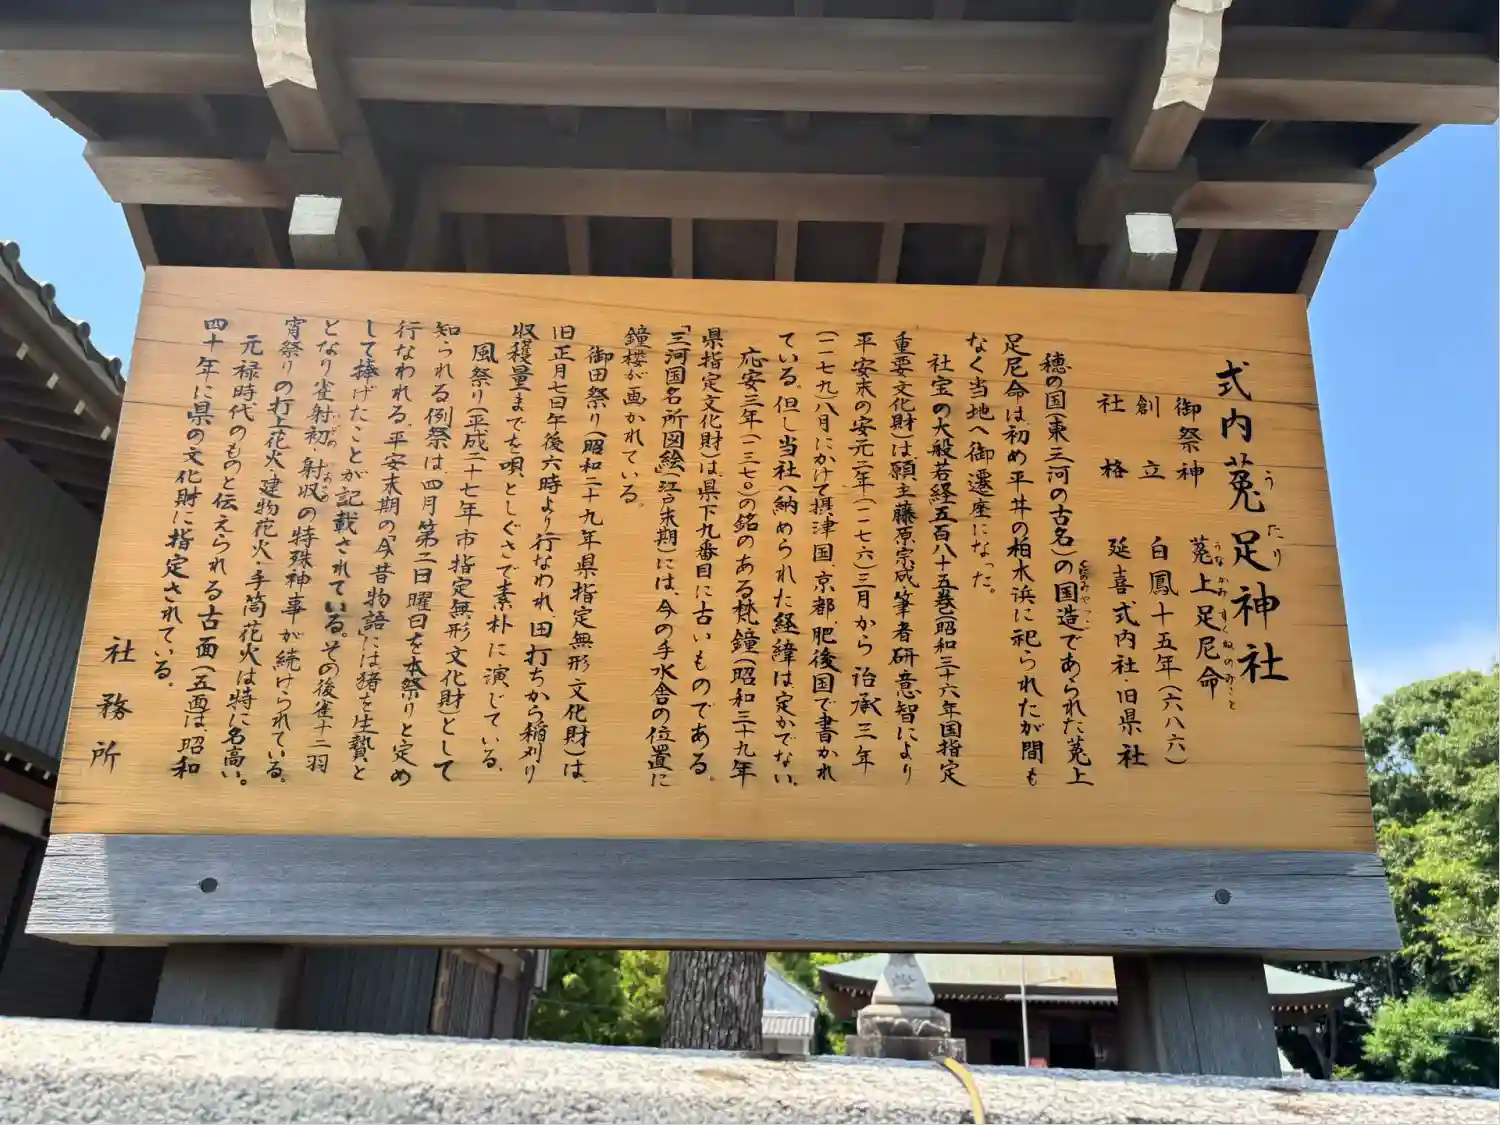 式内菟足神社
うたり
御祭神 菟上足尼命
うなかみすくねのみこと
創立 白鳳十五年(六八六)
社格 延喜式内社・旧県社
穂の国(東三河の古名)の国造であられた菟上
くにのみやつこ
足尼命は、初め平井の柏木浜に祀られたが間も
なく当地へ御遷座になった。
社宝の大般若経五百八十五巻(昭和三十六年国指定
重要文化財)は願主藤原宗成筆者研意智により
平安末の安元二年(一一七六)三月から治承三年
(一一七九)八月にかけて摂津国、京都、肥後国で書かれ
ている。但し当社へ納められた経緯は定かでない。
応安三年(一三七〇)の銘のある梵鐘(昭和三十九年
県指定文化財)は、県下九番目に古いものである。
「三河国名所図絵」(江戸末期)には、今の手水舎の位置に
鐘楼が画かれている。
御田祭り(昭和二十九年県指定無形文化財)は、
旧正月七日午後六時より行なわれ、田打ちから稲刈り
収穫量までを唄としぐさで素朴に演じている。
風祭り(平成二十七年市指定無形文化財)として
知られる例祭は四月第二日曜日を本祭りと定め
行なわれる。平安末期の「今昔物語」には猪を生贄と
して捧げたことが記載されている。その後雀十二羽
となり雀射初、射収の特殊神事が続けられている。
宵祭りの打上花火・建物花火・手筒花火は特に名高い。
元禄時代のものと伝えられる古面(五面)は昭和
四十年に県の文化財に指定されている。
社務所